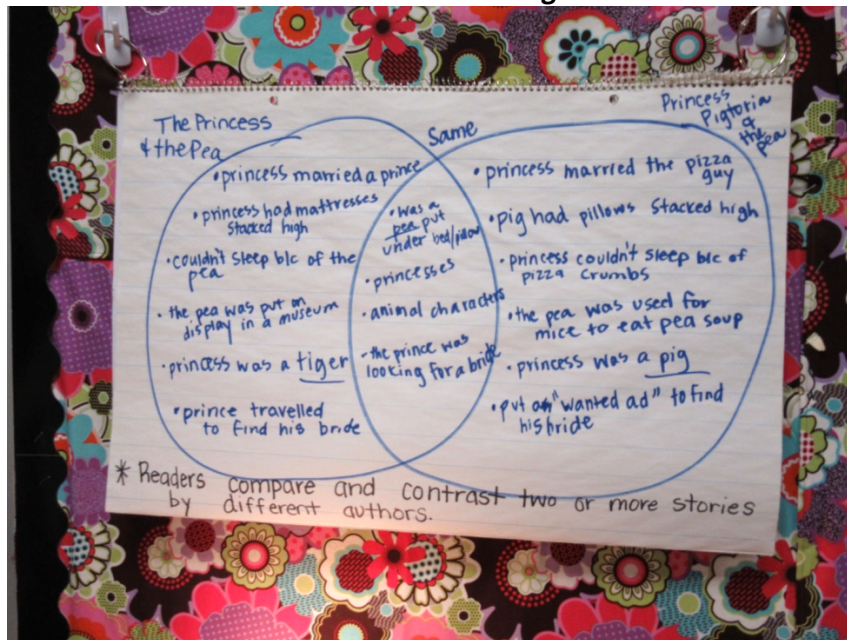 The Princess
& the Pea
Same
Princess
Pigtoria
& the
pea
•princess married a prince
•princess had mattresses
stacked high
•couldn't sleep b/c of the
pea
•the pea was put on
display in a museum
•princess was a tiger
•prince travelled
to find his bride
•was a
pea put
under bed/pillow
•princesses
•animal characters
•the prince was
looking for a bride
•princess married the pizza
guy
•pig had pillows stacked high
•princess couldn't sleep b/c of
pizza crumbs
•the pea was used for
mice to eat pea soup
•princess was a pig
•put an "wanted ad" to find
his bride
* Readers compare and contrast two or more stories
by different authors.